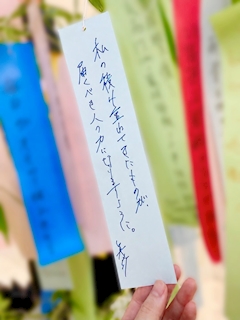 私の積み重ねてきたものが、
届くべき人の力になりますように。